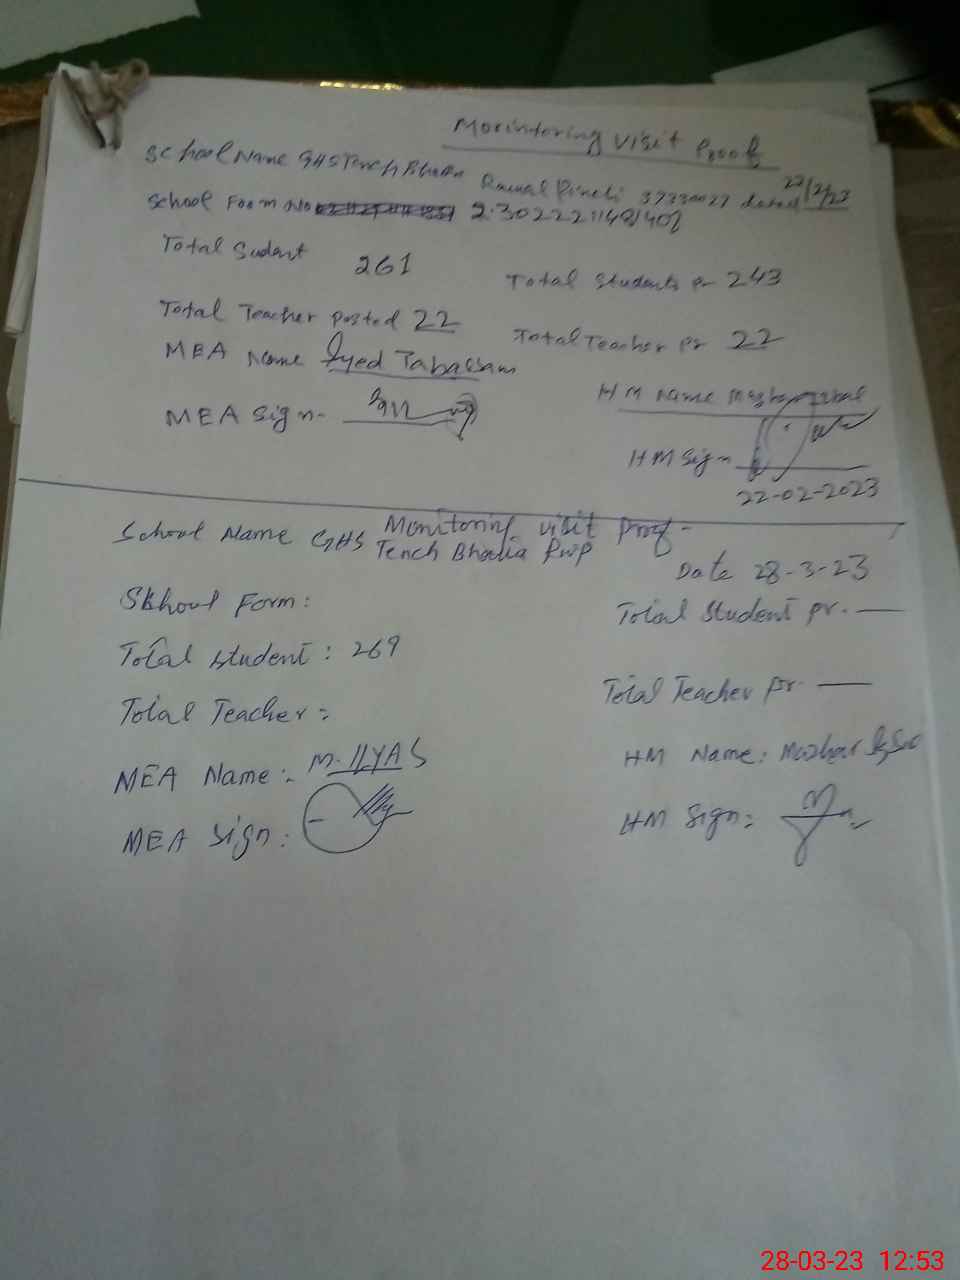 Monintoring visit Proof
School Name GHS Tench Bhatta Rawal Pindi 37330027 dated 22/2/23
School Form No 2.302221148140
Total Sudent 261 Total Students Pr 243
Total Teacher posted 22 Total Teacher Pr 22
MEA Name Syed Tabassam
HM Name Mazhar Iqbal
MEA Sign-
HM Sign
22-02-2023
Monitoring visit Proof-
School Name GHS Tench Bhatta Rwp
Date 28-3-23
School Form:
Total Student pr. —
Total Student: 269
Total Teacher Pr. —
Total Teacher:
HM Name: Mazhar Iqbal
MEA Name:- M. ILYAS
HM Sign:
MEA Sign:
28-03-23 12:53